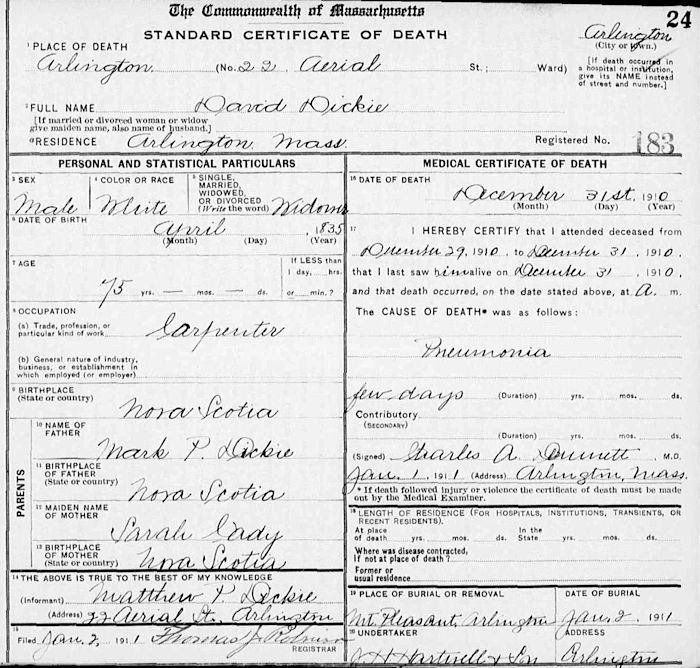 The Commonwealth of Massachusetts
24
STANDARD CERTIFICATE OF DEATH
Arlington
(City or town.)
1 PLACE OF DEATH
Arlington (No. 22 Aerial St.; Ward)
[If death occurred in a hospital or institution, give its NAME instead of street and number.]
2 FULL NAME David Dickie
[If married or divorced woman or widow give maiden name, also name of husband.]
a RESIDENCE Arlington Mass.
Registered No. 183
PERSONAL AND STATISTICAL PARTICULARS
3 SEX
Male
4 COLOR OR RACE
White
5 SINGLE, MARRIED, WIDOWED, OR DIVORCED (Write the word)
Widower
6 DATE OF BIRTH
April , 1835
(Month) (Day) (Year)
7 AGE
75 yrs. — mos. — ds.
If LESS than
1 day,....hrs.
or.....min.?
8 OCCUPATION
(a) Trade, profession, or particular kind of work
Carpenter
(b) General nature of industry, business, or establishment in which employed (or employer)
9 BIRTHPLACE
(State or country)
Nova Scotia
PARENTS
10 NAME OF FATHER
Mark P. Dickie
11 BIRTHPLACE OF FATHER
(State or country)
Nova Scotia
12 MAIDEN NAME OF MOTHER
Sarah Cady
13 BIRTHPLACE OF MOTHER
(State or country)
Nova Scotia
14 THE ABOVE IS TRUE TO THE BEST OF MY KNOWLEDGE
(Informant) Matthew P. Dickie
(Address) 22 Aerial St. Arlington
15
Filed Jan. 2, 1911 Thomas J. Robinson
REGISTRAR
MEDICAL CERTIFICATE OF DEATH
16 DATE OF DEATH
December 31st, 1910
(Month) (Day) (Year)
17 I HEREBY CERTIFY that I attended deceased from
December 29, 1910, to December 31, 1910,
that I last saw him alive on December 31, 1910,
and that death occurred, on the date stated above, at A. m.
The CAUSE OF DEATH* was as follows:
Pneumonia
few days (Duration) yrs. mos. ds.
Contributory
(SECONDARY)
(Duration) yrs. mos. ds.
(Signed) Charles A. M.D.
Jan. 1, 1911 (Address) Arlington, Mass.
* If death followed injury or violence the certificate of death must be made out by the Medical Examiner.
18 LENGTH OF RESIDENCE (FOR HOSPITALS, INSTITUTIONS, TRANSIENTS, OR RECENT RESIDENTS).
At place of death yrs. mos. ds. In the State yrs. mos. ds.
Where was disease contracted, If not at place of death?
Former or usual residence
19 PLACE OF BURIAL OR REMOVAL
Mt. Pleasant, Arlington
DATE OF BURIAL
Jan. 2, 1911
20 UNDERTAKER
J. H. Hartwell & Son
ADDRESS
Arlington